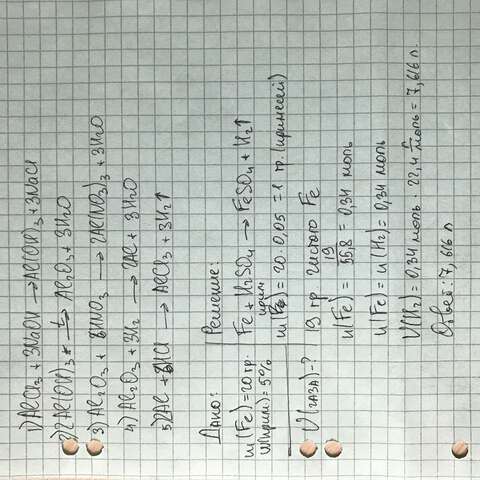 1) AlCl3 + 3NaOH → Al(OH)3 + 3NaCl
2) 2Al(OH)3 t→ Al2O3 + 3H2O
3) Al2O3 + 6HNO3 → 2Al(NO3)3 + 3H2O
4) Al2O3 + 3H2 → 2Al + 3H2O
5) 2Al + 6HCl → AlCl3 + 3H2↑
Дано:
m(Fe)=20 гр.
w(прим)=5%
V(газа)-?
Решение:
Fe + H2SO4 → FeSO4 + H2↑
m(прим)= 20·0,05 = 1 гр. (примесей)
19 гр чистого Fe
n(Fe) = 19/55,8 = 0,34 моль
n(Fe) = n(H2) = 0,34 моль
V(H2) = 0,34 моль · 22,4 л/моль = 7,616 л.
Ответ: 7,616 л